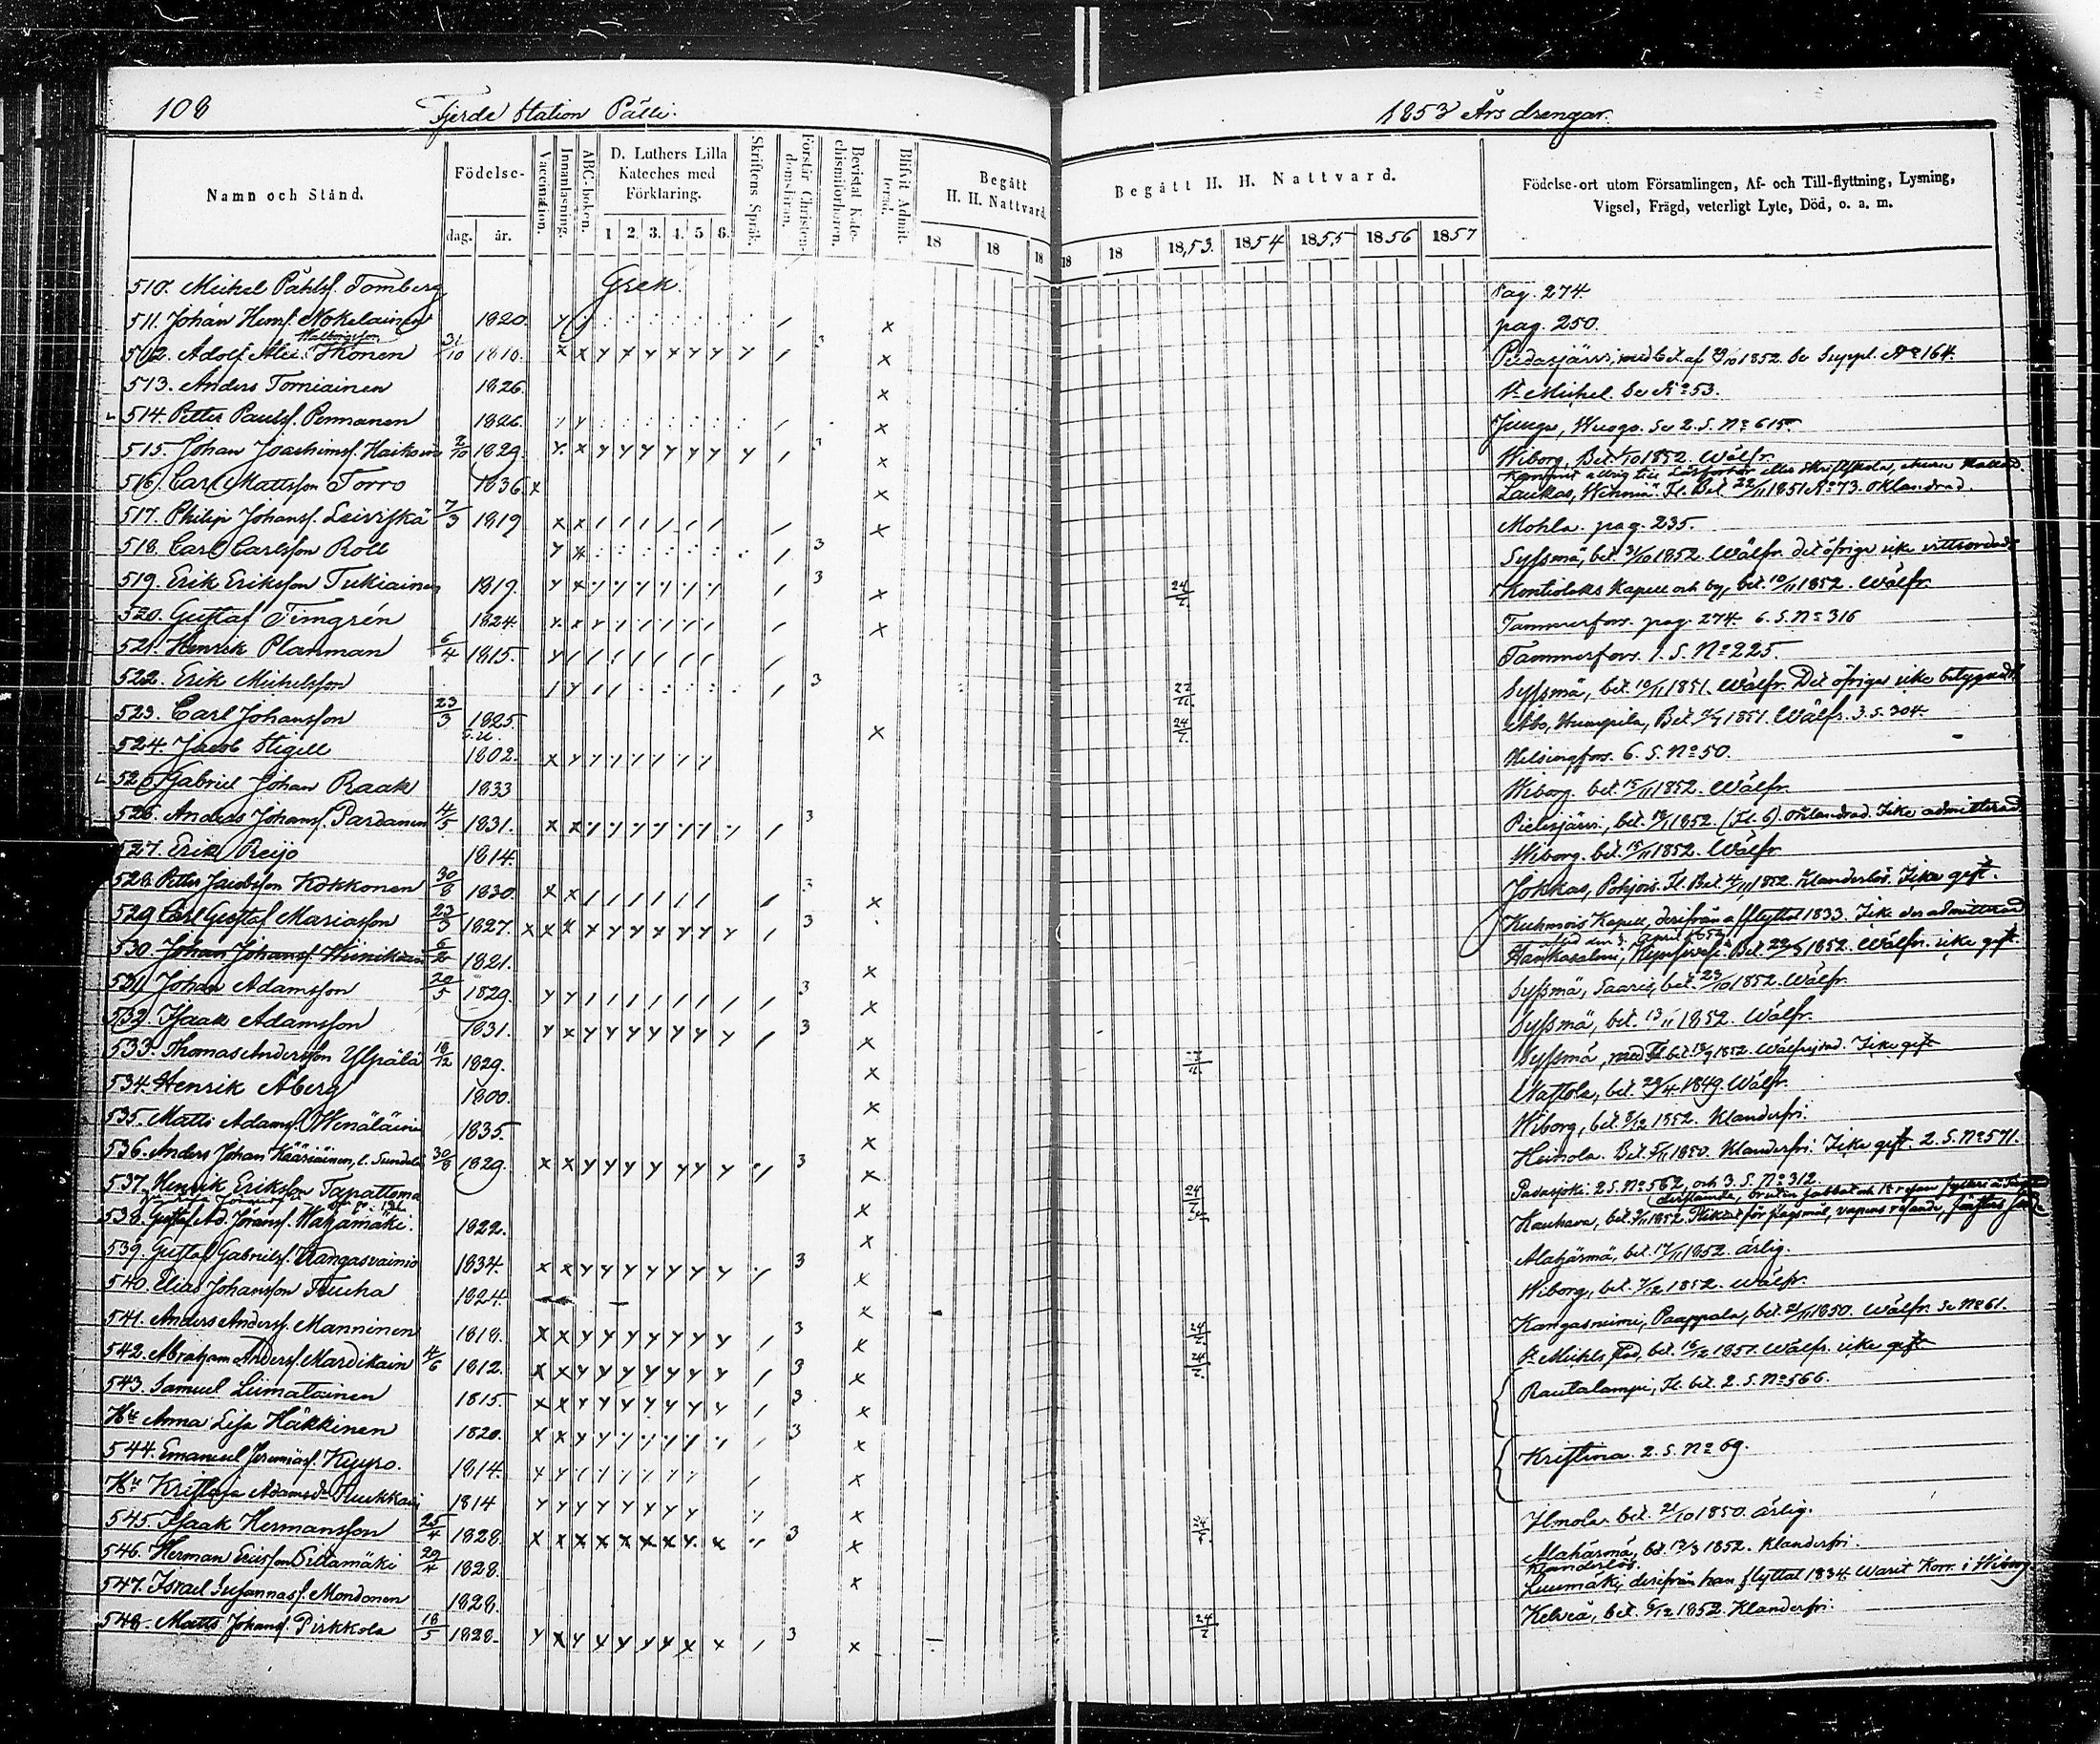 108
Fjerde Station Pälli.
Namn och Stånd.
Födelse-
dag. år.
Vaccination.
Innanläsning.
ABC-boken.
D. Luthers Lilla Kateches med Förklaring.
1 2. 3. 4. 5 6.
Skriftens Språk.
Förstår Christendomsläran.
Bevistat Katechismiförhören.
Blifvit Admitterad.
Begått H. H. Nattvard.
18 18 18
510. Michel Påhlsf. Tomberg Grek.
511. Johan Hemf. Nokelainen 1820.
512. Adolf Alex: Ikonen 31/10 1810.
513. Anders Torniainen 1826.
514. Petter Paulsf. Pennanen 1826.
515. Johan Joachimsf. Haikoin 2/10 1829.
516. Carl Mattsson Torro 1836
517. Philip Johansf. Leiviskä 7/3 1819
518. Carl Carlsson Roll
519. Erik Eriksson Tukiainen 1819.
520. Gustaf Timgrén 1824.
521. Henrik Planman 6/4 1815.
522. Erik Michelsson
523. Carl Johansson 23/3 1825.
524. Jacob Stigell 1802.
525. Gabriel Johan Raak 1833
526. Andreas Johansf. Pardanen 4/5 1831.
527. Erik Reijo 1814.
528. Petter Jacobsson Kokkonen 30/8 1830.
529 Carl Gustaf Mariasson 23/3 1827.
530. Johan Johansf. Hiinikäin 1821.
531. Johan Adamsson 20/5 1829.
532. Isaak Adamsson 1831.
533. Thomas Andersson Ylipälä 18/12 1829.
534. Henrik Åberg 1800.
535. Matti Adamsf. Wenäläin 1835.
536. Anders Johan Kääriäinen, l. Sundela 30/8 1829.
537. Henrik Eriksson Tapattoma
538. Gustaf Ad. Jöransf. Wahamäki. 1822.
539. Gustaf Gabrielsf. Kangasvainio 1834.
540. Elias Johansson Tiucha 1824.
541. Anders Andersf. Manninen 1818.
542. Abraham Andersf. Mardikain 4/6 1812.
543. Samuel Liimatainen 1815.
Hu Anna Lisa Häkkinen 1820.
544. Emanuel Jeremiasf. Kyyro. 1814.
Hu Kristina Adamsdr Kuukkain 1814
545. Isaak Hermansson 25/4 1828.
546. Herman Ericsson Sillamäki 29/4 1828.
547. Israel Susannasf. Mondonen 1828.
548. Matts Johansf. Pirkkola 18/5 1828.
1853 Års drengar.
Begått H. H. Nattvard.
18 18 18,53. 1854 1855 1856 1857
Födelse-ort utom Församlingen, Af- och Till-flyttning, Lysning,
Vigsel, Frägd, veterligt Lyte, Död, o. a. m.
Pag. 274.
pag. 250.
Pudasjärvi, med bet. af 1852. Se Suppl. No 164.
St Michel. Se No 53.
Junga, Se 2. S. No 615.
Wiborg, Bet. 1852. Wälfr.
Laukas, Fl. Bet. 22/11 1851 No 73. oklandrad.
Mohla. pag. 235.
Syssmä, bet. 31/10 1852. Wälfr. det öfriga icke vittsordadt
Kontiolaks Kapell och by, bet. 10/11 1852. Wälfr.
Tammerfors. pag. 274. 6. S. No 316
Tammerfors. 1. S. No 225.
Syssmä, bet. 10/11 1851. Wälfr. Det öfriga icke betygadt
Åbo, Humpila, Bet. 1851. Wälfr. 3. S. 304.
Helsingfors. 6. S. No 50.
Wiborg. bet. 15/11 1852. Wälfr.
Pielisjärvi, bet. 1852. (Fl. 6). oklandrad. Icke admitterad
Wiborg. bet. 15/11 1852. Wälfr
Jokkas, Pohjois. Fl. Bet. 4/11 1852. Klanderlös. Icke gift.
Kuhmois Kapell, derifrån afflyttat 1833. Icke der admitterad
Hankasalmi, Bet. 1852. Wälfr. icke gift.
Syssmä, Saaris, bet. 23/10 1852. Wälfr.
Syssmä, bet. 13/11 1852. Wälfr.
Syssmä, med Fl. bet. 1852. Wälfrejdad. Icke gift
Nastola, bet. 29/4 1849. Wälfr.
Wiborg, bet. 8/12 1852. Klanderfri.
Heinola. Bet. 1850. Klanderfri. Icke gift. 2. S. No 571.
Padasjoki. 2 S. No 562, och 3. S. No 312.
Kauhava, bet. 1852.
Alahärmä, bet. 17/11 1852. ärlig.
Wiborg, bet. 7/12 1852. wälfr.
Kangasniemi, Paappala, bet. 21/11 1850. Wälfr. Se No 61.
St Michels bet. 1851. Wälfr. icke gift.
Rautalampi, Fl. bet. 2. S. No 566.
Kristina 2. S. No 69.
Ilmola. bet. 21/10 1850. ärlig.
Alahärmä, bet. 1852. Klanderfri.
Klanderlös.
Luumäki, derifrån han flyttat 1834. Warit Korr. i Wiborg
Kelviå, bet. 6/12 1852. Klanderfri.